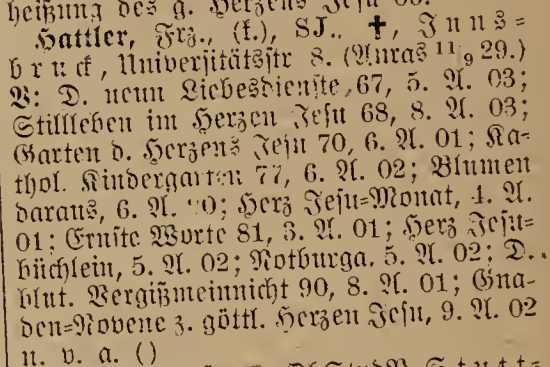 heißung des g. Herzens Jesu
Hattler, Frz., (k.), SJ., ✝, Inns=
bruck, Universitätsstr 8. (Anras 11/9 29.)
V: D. neun Liebesdienste, 67, 5. A. 03;
Stillleben im Herzen Jesu 68, 8. A. 03;
Garten d. Herzens Jesu 70, 6. A. 01; Ka=
thol. Kindergarten 77, 6. A. 02; Blumen
daraus, 6. A. Herz Jesu=Monat, 4. A.
01; Ernste Worte 81, 3. A. 01; Herz Jesu=
büchlein, 5. A. 02; Notburga. 5. A. 02; D.
blut. Vergißmeinnicht 90, 8. A. 01; Gna=
den=Novene z. göttl. Herzen Jesu, 9. A. 02
u. v. a. ()